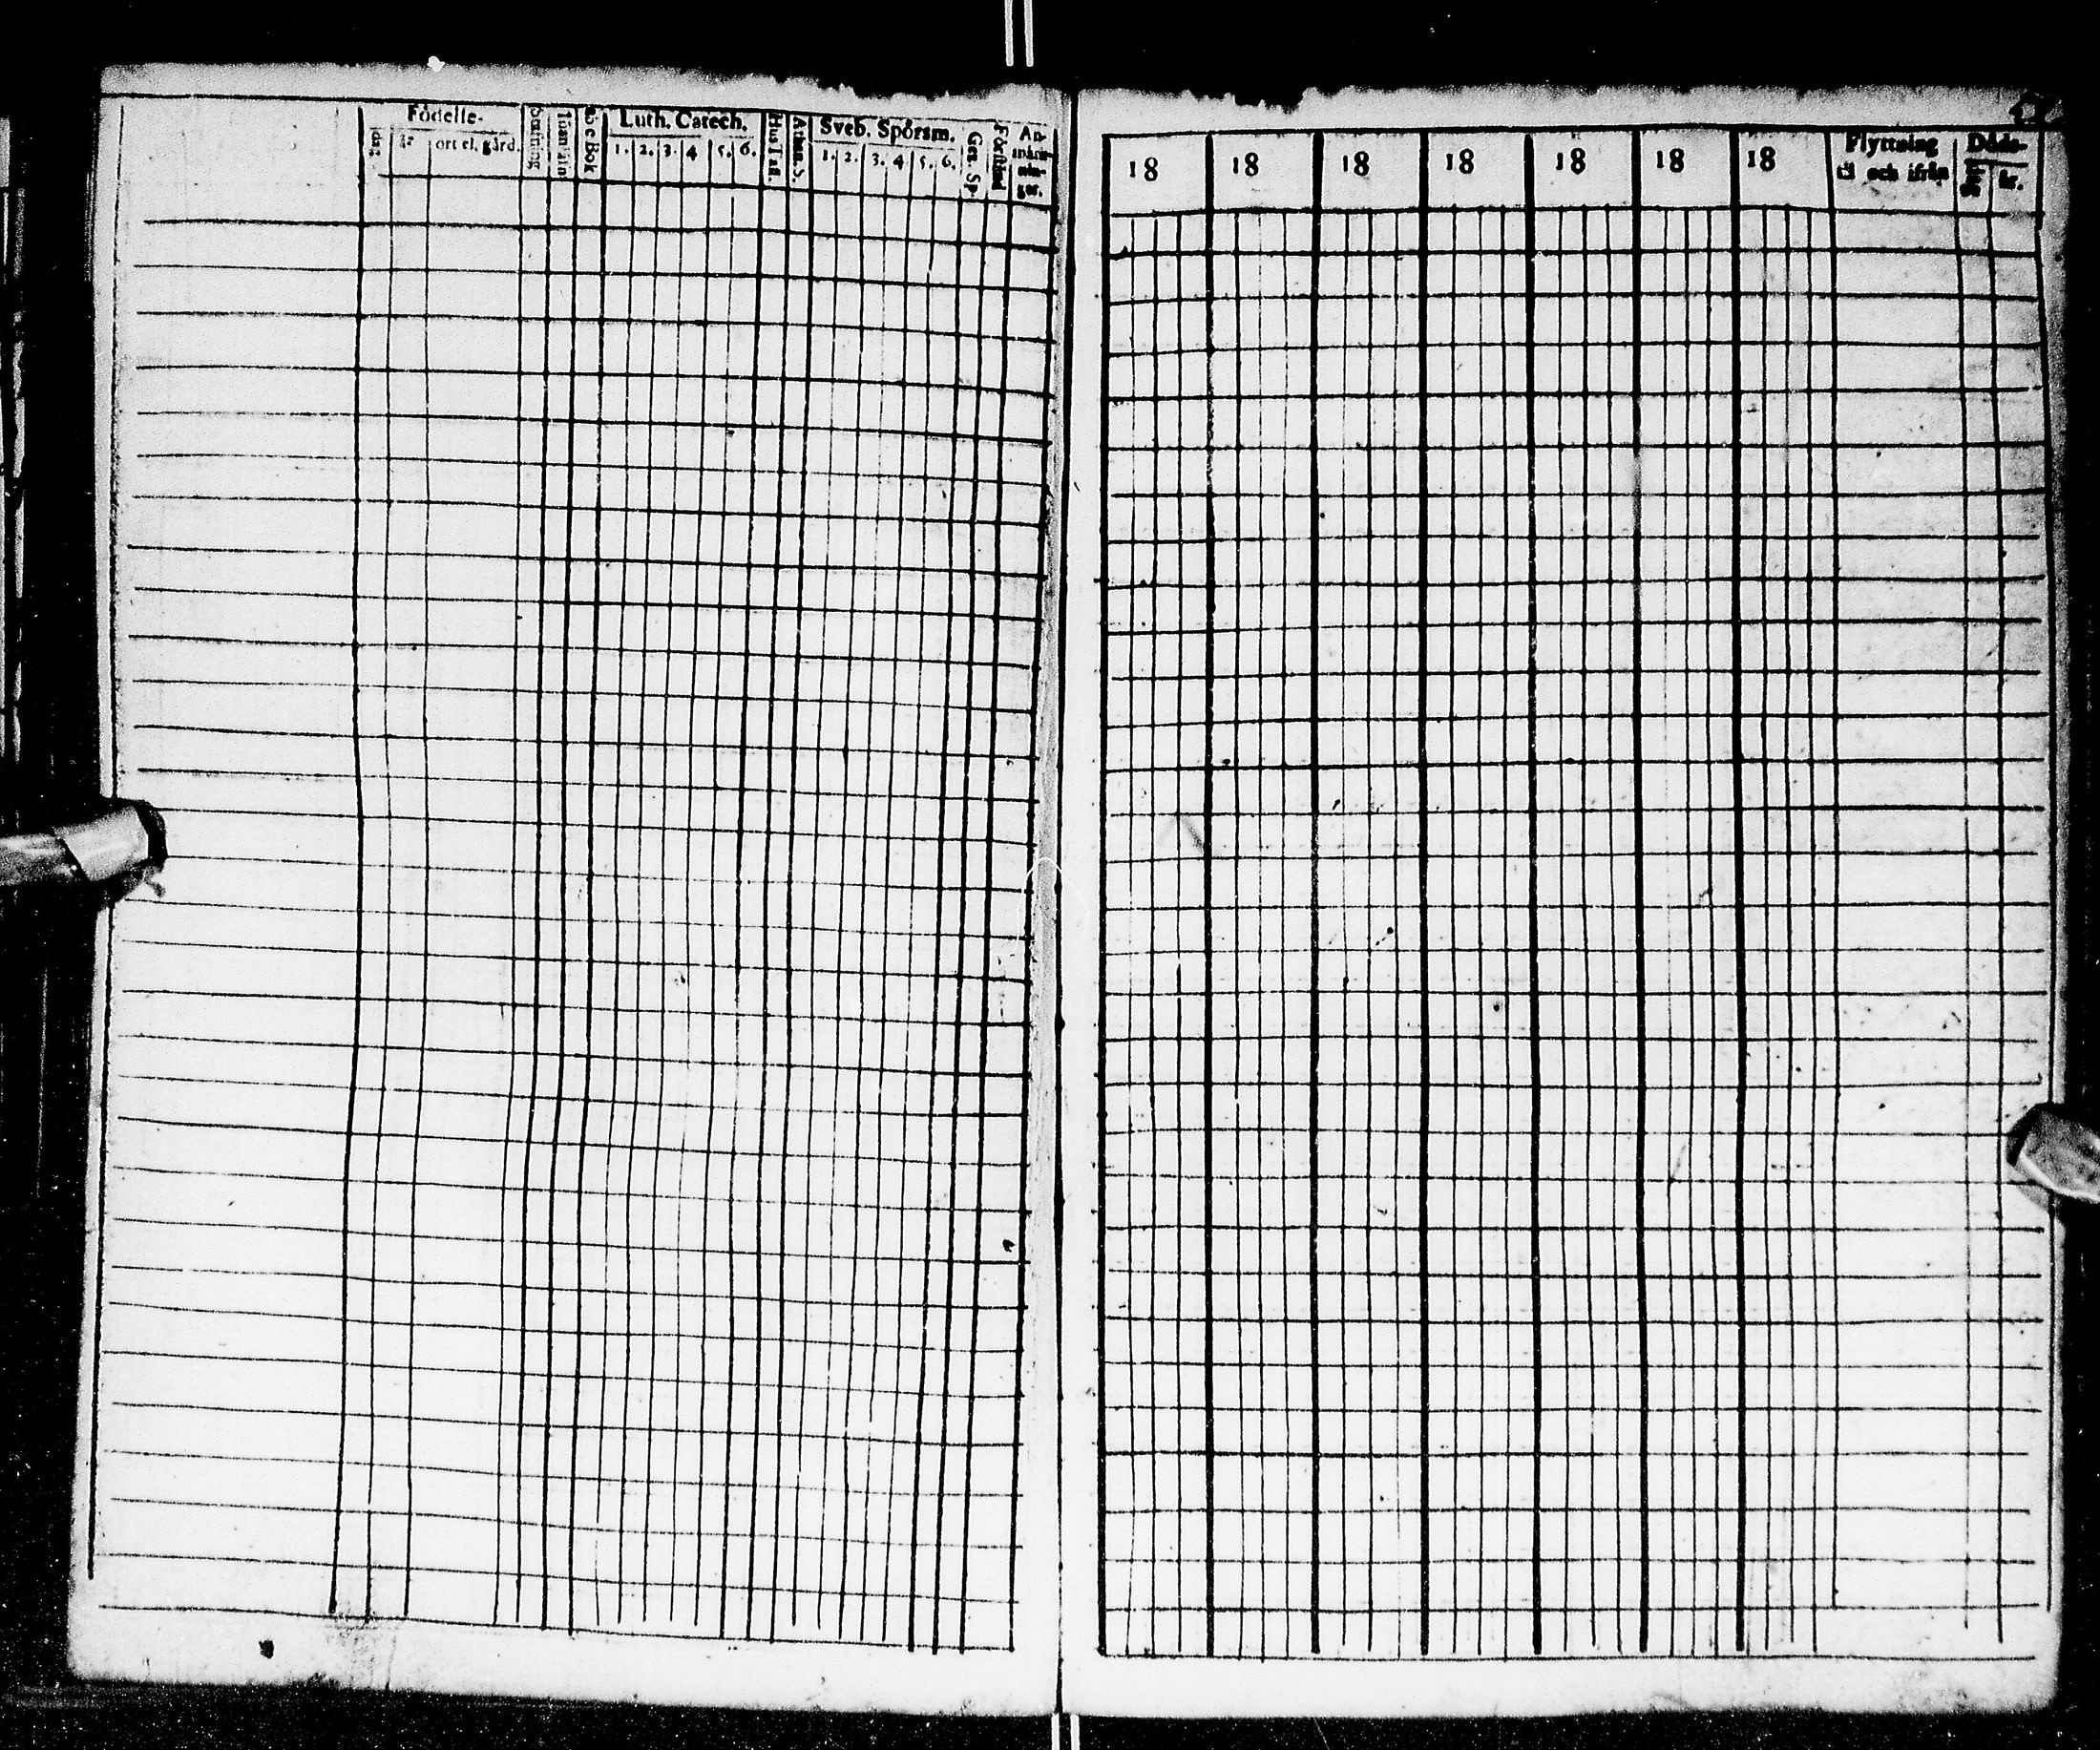 Födelse-
dag
år
ort el. gård.
Smitning
Innan
a b c Bok
Luth. Catech.
1. 2. 3. 4 5. 6.
Hus Tafl.
Athan. S.
Sveb. Spörsm.
1. 2. 3. 4 5. 6.
Gez. Sp.
Förstånd
An-
märk-
nin-
gar.
18 18 18 18 18 18 18
Flyttning
til och ifrån
Döds-
dag
år.